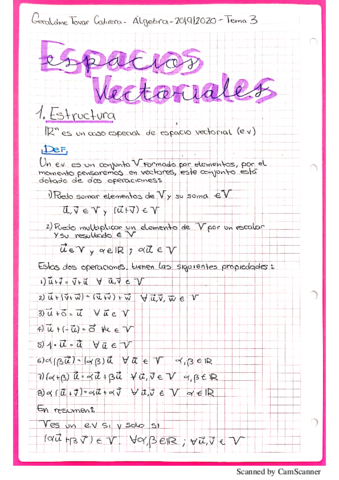 Geraldine Tovar Cabrera - Álgebra - 2019/2020 - Tema 3
Espacios
Vectoriales
1. Estructura
ℝⁿ es un caso especial de espacio vectorial (e.v)
Def
Un e.v. es un conjunto V formado por elementos, por el
momento pensaremos en vectores, este conjunto está
dotado de dos operaciones:
1) Puedo sumar elementos de V y su suma ∈ V
u⃗, v⃗ ∈ V y (u⃗+v⃗) ∈ V
2) Puedo multiplicar un elemento de V por un escalar
y su resultado ∈ V
u⃗ ∈ V y α ∈ ℝ ; αu⃗ ∈ V
Estas dos operaciones, tienen las siguientes propiedades:
1) u⃗+v⃗ = v⃗+u⃗ ∀ u⃗,v⃗ ∈ V
2) u⃗+(v⃗+w⃗) = (u⃗+v⃗)+w⃗ ∀ u⃗,v⃗,w⃗ ∈ V
3) u⃗+0⃗ = u⃗ ∀ u⃗ ∈ V
4) u⃗+(-u⃗) = 0⃗ ∀u ∈ V
5) 1·u⃗ = u⃗ ∀ u⃗ ∈ V
6) α(βu⃗) = (αβ)u⃗ ∀ u⃗ ∈ V α,β ∈ ℝ
7) (α+β)u⃗ = αu⃗+βu⃗ ∀ u⃗,v⃗ ∈ V α,β ∈ ℝ
8) α(u⃗+v⃗) = αu⃗+αv⃗ ∀ u⃗,v⃗ ∈ V α ∈ ℝ
En resumen:
V es un e.v si y solo si
(αu⃗+βv⃗) ∈ V. ∀α,β ∈ ℝ ; ∀u⃗,v⃗ ∈ V
Scanned by CamScanner